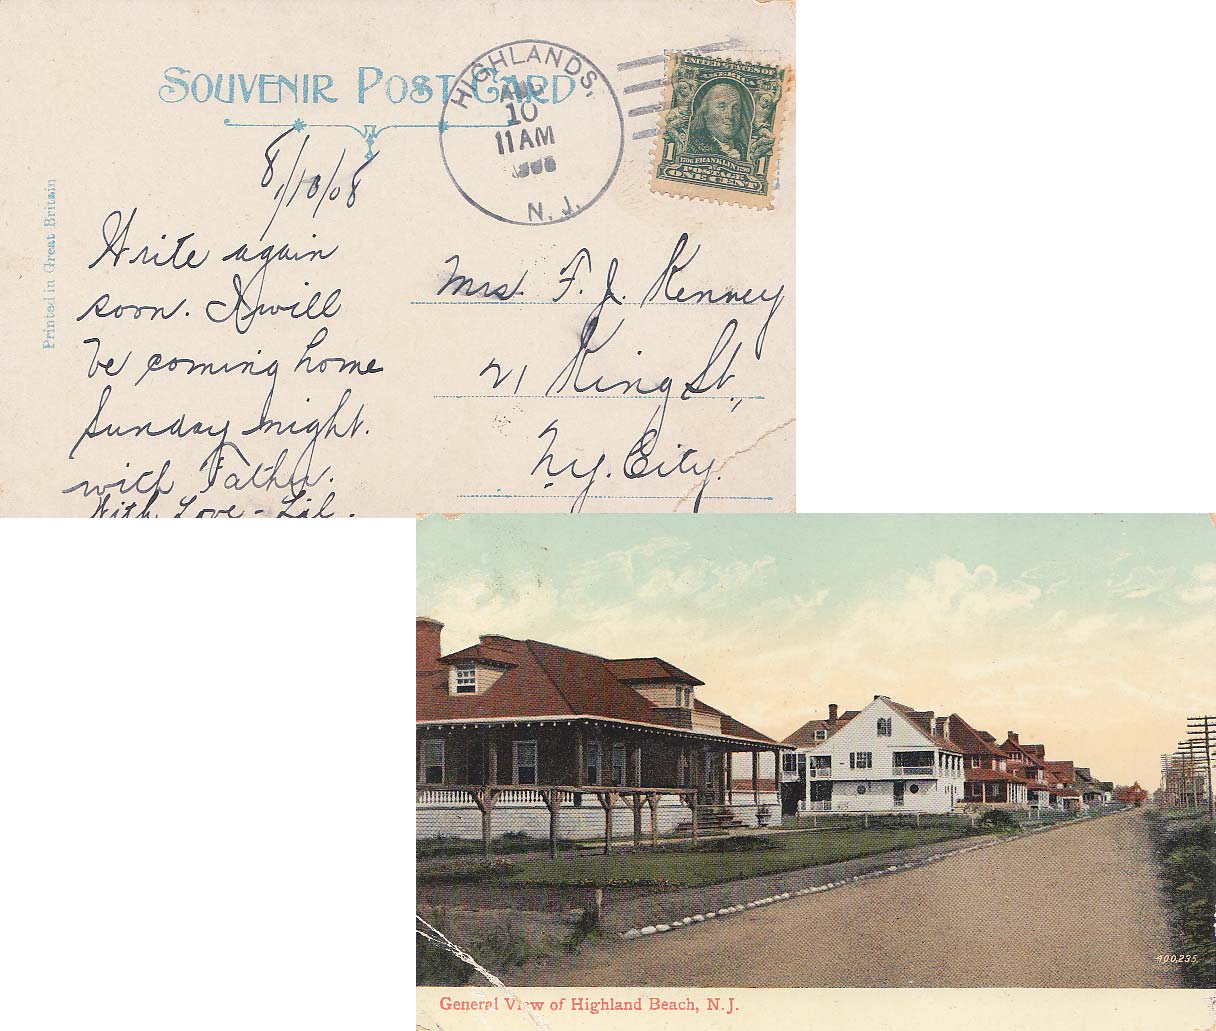 SOUVENIR POST CARD
HIGHLANDS,
AUG
10
11 AM
N. J.
UNITED STATES OF
AMERICA
1706 FRANKLIN 1790
1 1
POSTAGE
ONE CENT
8/10/08
Printed in Great Britain
Write again
soon. I will
be coming home
Sunday night.
with Father.
With Love - Lil.
Mrs. F. J. Kenney
21 King St.,
N.Y. City.
400,235
General View of Highland Beach, N.J.